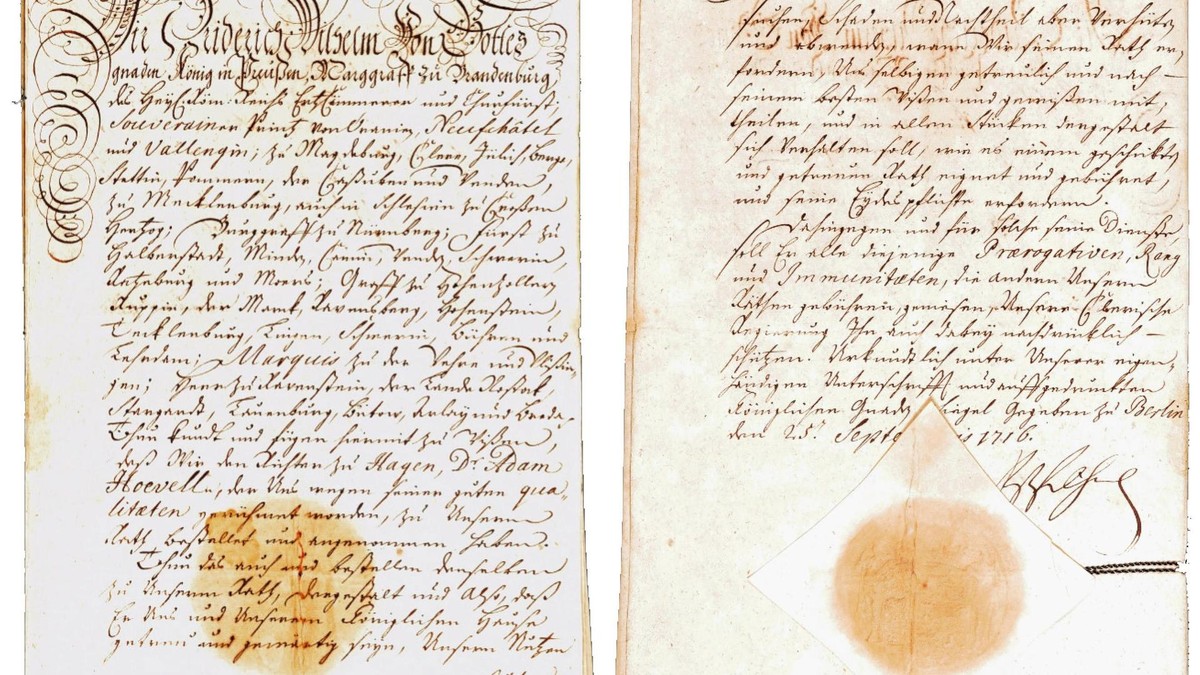 Wir Friderich Wilhelm Von Gottes
gnaden König in Preußen, Marggraff zu Brandenburg
des Heyl. Röm: Reichs Ertzcämmerer und Churfürst;
Souverainer Printz von Oranien, Neufchâtel
und Vallengin; zu Magdeburg, Cleve, Jülich, Berge,
Stettin, Pommern, der Caßuben und Wenden,
zu Mecklenburg, auch in Schlesien zu Croßen
Hertzog; Burggraff zu Nürnberg; Fürst zu
Halberstadt, Minden, Camin, Wenden, Schwerin,
Ratzeburg und Moers; Graff zu Hohenzollern
Ruppin, der Marck, Ravensberg, Hohenstein,
Tecklenburg, Lingen, Schwerin, Bühren und
Lehrdam; Marquis zu der Vehre und Vlißin-
gen; Herr zu Ravenstein, der Lande Rostock,
Stargardt, Lauenburg, Bütow, Arlay und Breda.
Thun kundt und fügen hiermit zu Wißen,
daß Wir den Richter zu Hagen, Dr. Adam
Hoevell, der Uns wegen seiner guten qua-
litæten gerühmet worden, zu Unserm
Rath bestellet und angenommen haben.
Thun das auch und bestellen denselben
zu Unserm Rath, dergestalt und Also, daß
Er Uns und Unserm Königlichen Hause
getreu und gewärtig seyn, Unsern Nutzen
suchen, Schaden und Nachtheil aber Verhüten
und abwenden, wann Wir seinen Rath er-
fordern, Uns selbigen getreulich und nach
seinem besten Wißen und gewißen mit-
theilen, und in allen Stücken dergestalt
sich Verhalten soll, wie es einem geschickten
und getreuen Rath eignet und gebühret,
und seine Eydes pflichte erfordern.
Dahingegen und für solche seine Dienste,
soll Er alle diejenige Prærogativen, Rang
und Immunitæten, die andern Unsern
Räthen gebühren, genießen, Unsere Clevische
Regierung Ihn auch dabey nachdrücklich
schützen. Urkundtlich unter Unserer eigen-
händigen Unterschrifft und auffgedrucktem
Königlichen Gnaden Siegel Gegeben zu Berlin
den 25. Septe 1716.